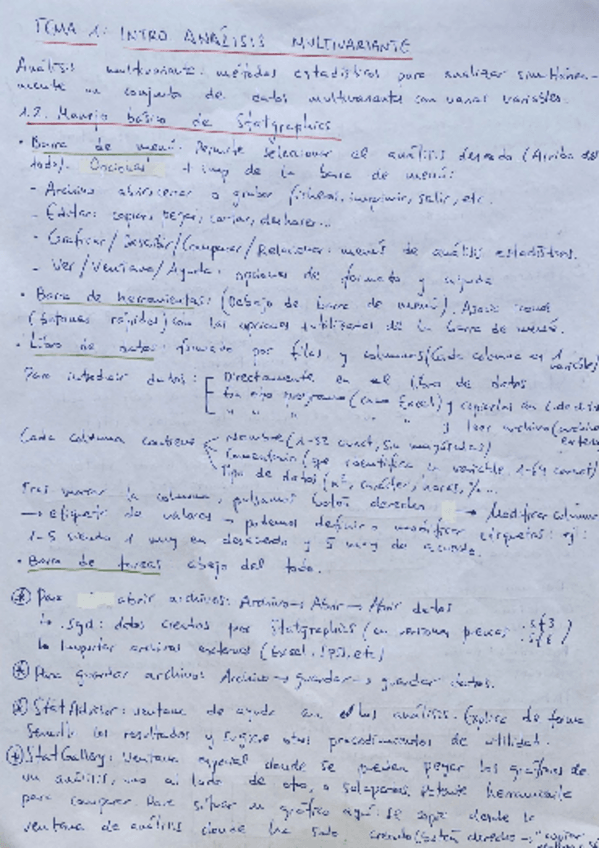 TEMA 1: INTRO ANÁLISIS MULTIVARIANTE
Análisis multivariante: métodos estadísticos para analizar simultánea-
mente un conjunto de datos multivariantes con varias variables.
1.2. Manejo básico de Statgraphics
· Barra de menú: Permite seleccionar el análisis deseado (Arriba del
todo). Opciones + imp de la barra de menú:
- Archivo: abrir, cerrar o grabar ficheros, imprimir, salir, etc.
- Editar: copiar, pegar, deshacer...
- Graficar/Describir/Comparar/Relacionar: menús de análisis estadísticos.
- Ver/Ventana/Ayuda: opciones de formato y ayuda
· Barra de herramientas: (Debajo de barra de menú). Asocia iconos
(botones rápidos) con las opciones + utilizadas de la barra de menú.
· Libro de datos: por filas y columnas (Cada columna es 1 variable)
Para introducir datos: Directamente en el libro de datos
En otro programa (como Excel) y copiarlos en
" " " y leer archivo
Cada columna contiene Nombre (1-32 caract, sin mayúsculas)
Comentario (que identifica la variable, 1-64 caract)
Tipo de datos (nº, carácter, %...
Tras marcar la columna, pulsamos botón derecho → Modificar columna
→ etiqueta de valores → podemos definir o modificar etiquetas: ej:
1-5 siendo 1 muy en desacuerdo y 5 muy de acuerdo.
· Barra de tareas abajo del todo.
* Para abrir archivos: Archivo → Abrir → Abrir datos
↳ .sgd: datos creados por Statgraphics (en versiones previas .sf3
.sf6)
↳ Importar archivos externos (Excel, etc)
* Para guardar archivos: Archivo → guardar → guardar datos.
* StatAdvisor: ventana de ayuda en los análisis. Explica de forma
sencilla los resultados y sugiere otros procedimientos de utilidad.
* StatGallery: Ventana especial donde se pueden pegar los gráficos de
un análisis, uno al lado de otro, o solaparlos, potente herramienta
para comparar. Para situar un gráfico aquí: se copia desde la
ventana de análisis donde ha sido creado (botón derecho → "copiar